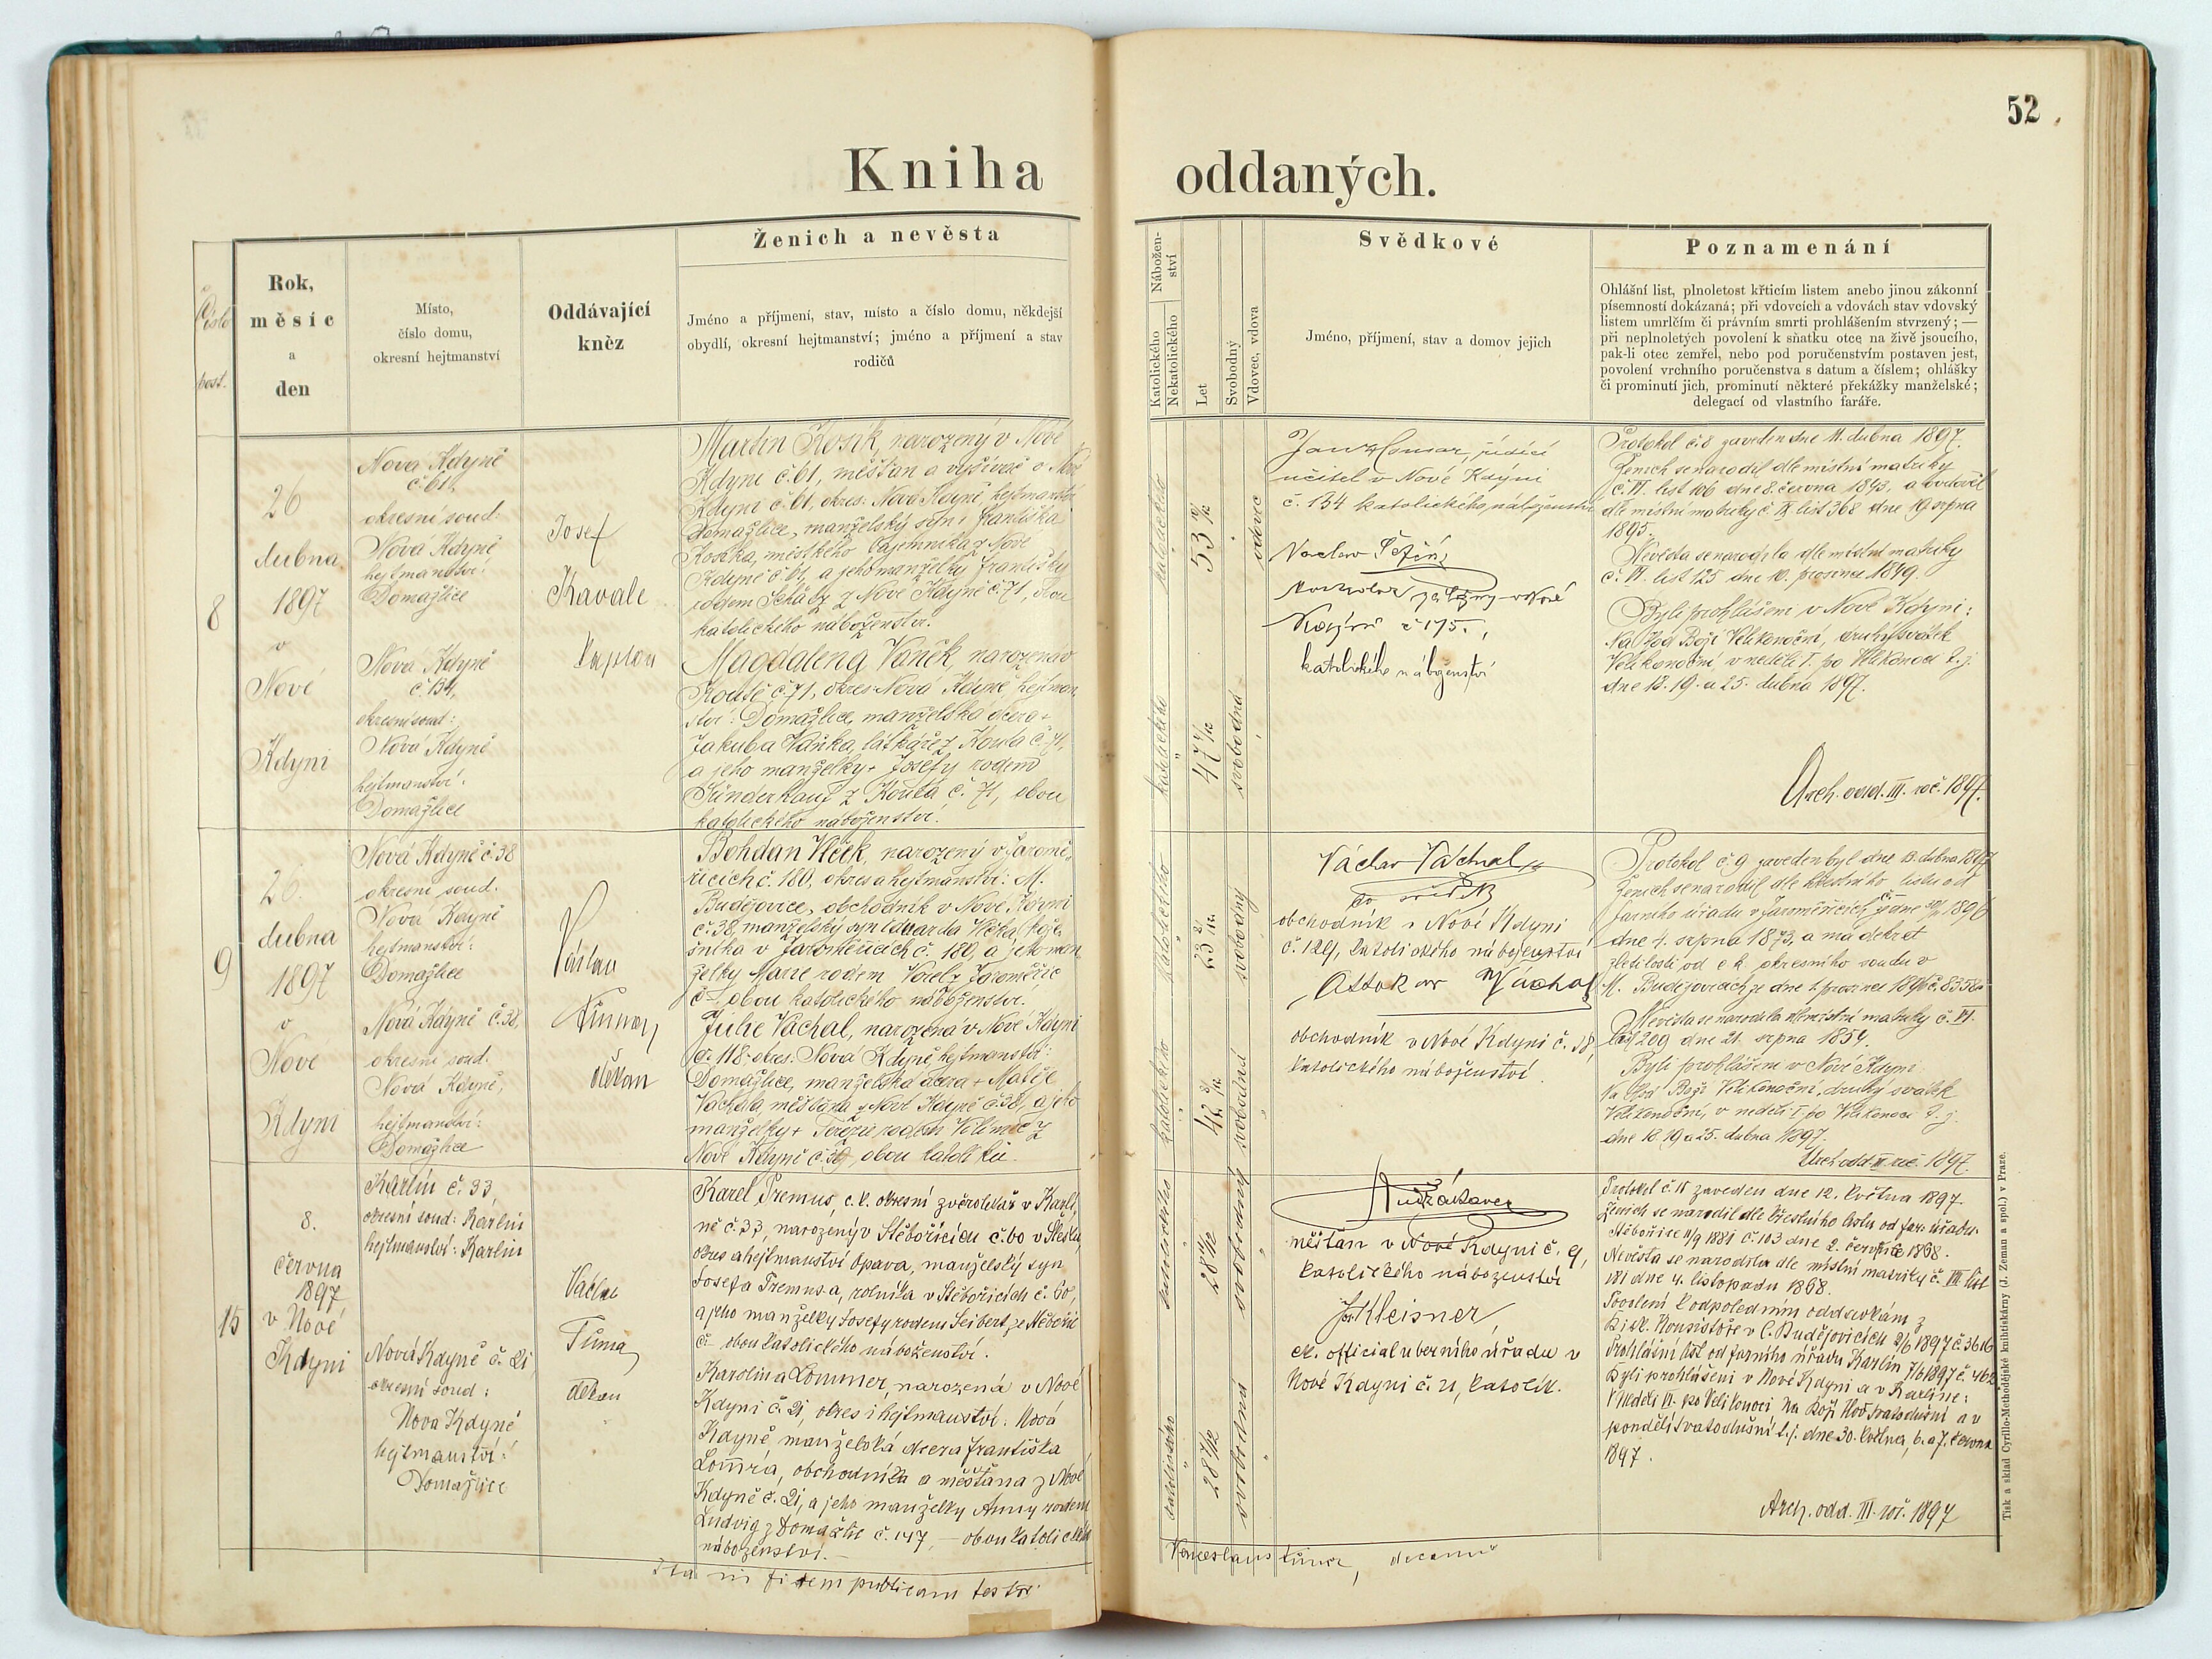 52
Kniha oddaných.
Číslo
post.
Rok,
měsíc
a
den
Místo,
číslo domu,
okresní hejtmanství
Oddávající
kněz
Ženich a nevěsta
Jméno a příjmení, stav, místo a číslo domu, někdejší
obydlí, okresní hejtmanství; jméno a příjmení a stav
rodičů
Nábožen-
ství
Katolického
Nekatolického
Let
Svobodný
Vdovec, vdova
Svědkové
Jméno, příjmení, stav a domov jejich
Poznamenání
Ohlášní list, plnoletost křticím listem anebo jinou zákonní
písemností dokázaná; při vdovcích a vdovách stav vdovský
listem umrlčím či právním smrti prohlášením stvrzený; —
při neplnoletých povolení k sňatku otce na živě jsoucího,
pak-li otec zemřel, nebo pod poručenstvím postaven jest,
povolení vrchního poručenstva s datum a číslem; ohlášky
či prominutí jich, prominutí některé překážky manželské;
delegací od vlastního faráře.
8
26
dubna
1897
v
Nové
Kdyni
Nová Kdyně
č. 61,
okresní soud:
Nová Kdyně
hejtmanství:
Domažlice
Nová Kdyně
č. 134,
okresní soud:
Nová Kdyně
hejtmanství:
Domažlice
Josef
Kavale
kaplan
Martin Kosík, narozený v Nové
Kdyni č. 61, měšťan a vyšívač v Nové
Kdyni č. 61, okres: Nová Kdyně, hejtmanství
Domažlice, manželský syn Františka
Kosíka, městkého tajemníka z Nové
Kdyně č. 61, a jeho manželky Františky
rodem z Nové Kdyně č. 71, obou
katolického náboženství.
Magdalena Vaněk, narozená v
Koutě č. 71, okres Nová Kdyně hejtman-
ství: Domažlice, manželská dcera +
Jakuba Vaňka, látkáře z Kouta č. 71,
a jeho manželky + Josefy rodem
z Kouta č. 71, obou
katolického náboženství.
katolického
53
vdovec
katolického
47
svobodná
Jan řídící
učitel v Nové Kdyni
č. 134 katolického náboženství
Václav
v Nové
Kdyni č 175.,
katolického náboženství
Protokol č. 8 zaveden dne 11. dubna 1897.
Ženich se narodil dle místní matriky
č. VI. list 106 dne 8. června 1843, a ovdověl
dle místní matriky č IX list 368 dne 19 srpna
1895.
Nevěsta se narodila dle místní matriky
č. VI. list 125 dne 10. prosince 1849.
Byli prohlášeni v Nové Kdyni:
Na Hod Boží Velikonoční, druhý svátek
Velikonoční, v neděli I. po Velikonoci t. j.
dne 18. 19. a 25. dubna 1897.
Arch. odd. III. roč. 1897.
9
26.
dubna
1897
v
Nové
Kdyni
Nová Kdyně č. 38
okresní soud:
Nová Kdyně
hejtmanství:
Domažlice
Nová Kdyně č. 38,
okresní soud:
Nová Kdyně,
hejtmanství:
Domažlice
Václav
Tůma,
děkan
Bohdan Vlček, narozený v Jaromě-
řicích č. 180, okres a hejtmanství: M.
Budějovice, obchodník v Nové Kdyni
č. 38, manželský syn Eduarda Vlčka,
v Jaroměřicích č. 180, a jeho man-
želky Marie rodem z Jaroměřic
č – obou katolického náboženství.
Julie Váchal, narozená v Nové Kdyni
č. 118 okres: Nová Kdyně hejtmanství:
Domažlice, manželská dcera + Matěje
Váchala, měšťana z Nové Kdyně č. 38, a jeho
manželky + Terezie rodem z
Nové Kdyně č. 39, obou katolíků.
katolického
23
svobodný
katolického
42
svobodná
Václav Váchal
obchodník v Nové Kdyni
č. 129, katolického náboženství
Ottokar Váchal
obchodník v Nové Kdyni č. 38,
katolického náboženství.
Protokol č. 9 zaveden byl dne 13. dubna 1897
Ženich se narodil dle křestního listu od
farního úřadu v Jaroměřicích, ze dne 1896
dne 4. srpna 1873, a má dekret
zletilosti od c k okresního soudu v
M. Budějovicích ze dne 1. prosince 1896 č. 8358.
Nevěsta se narodila dle místní matriky č. VI.
list 209 dne 21. srpna 1854.
Byli prohlášeni v Nové Kdyni
Na Hod Boží Velikonoční, druhý svátek
Velikonoční, v neděli I. po Velikonoci t. j.
dne 18. 19 a 25. dubna 1897.
Arch. odd. III roč. 1897.
15
8.
června
1897
v Nové
Kdyni
Karlín č. 33,
okresní soud: Karlín
hejtmanství: Karlín
Nová Kdyně č. 21,
okresní soud:
Nova Kdyně
hejtmanství:
Domažlice
Václav
Tůma,
děkan
Karel Premus, c. k. okresní zvěrolékař v Karlí-
ně č. 33, narozený v Stěbořicích č. 60 v Slezku
okres a hejtmanství Opava, manželský syn
Josefa Premusa, rolníka v Stěbořicích č. 60,
a jeho manželky Josefy rodem Seibert ze
č – obou katolického náboženství.
Karolina Lommer, narozená v Nové
Kdyni č. 21, okres i hejtmanství: Nová
Kdyně, manželská dcera Františka
Lom̅ra, obchodníka a měšťana z Nové
Kdyně č. 21, a jeho manželky Anny rodem
Ludvig z Domažlic č. 147, — obou katolického
náboženství. —
katolického
28
svobodný
katolického
28
svobodná
měšťan v Nové Kdyni č. 9,
katolického náboženství
Kleisner
ck. official u berního úřadu v
Nové Kdyni č. 21, katolík.
Protokol č. 15 zaveden dne 12. května 1897.
Ženich se narodil dle křestního listu od far. úřadu
Stěbořice 11/9 1881 č. 103 dne 2. července 1868.
Nevěsta se narodila dle místní matriky č. VII. list
181 dne 4. listopadu 1868.
Povolení k odpoledním oddavkám z
Bisk. Konsistoře v Č. Budějovicích 2/6 1897 č. 3616
Prohlášní list od farního úřadu Karlín 7/6 1897 č. 462
Byli prohlášeni v Nové Kdyni a v Karlíně:
V neděli VI. po Velikonoci na Boží Hod svatodušní a v
pondělí svatodušní t. j. dne 30. května, 6. a 7. června
1897.
Arch. odd. III. roč. 1897
Ita in fidem publicam testor Venceslaus Tůma, decanus
Tisk a sklad Cyrillo-Methodějské knihtiskárny (J. Zeman a spol.) v Praze.